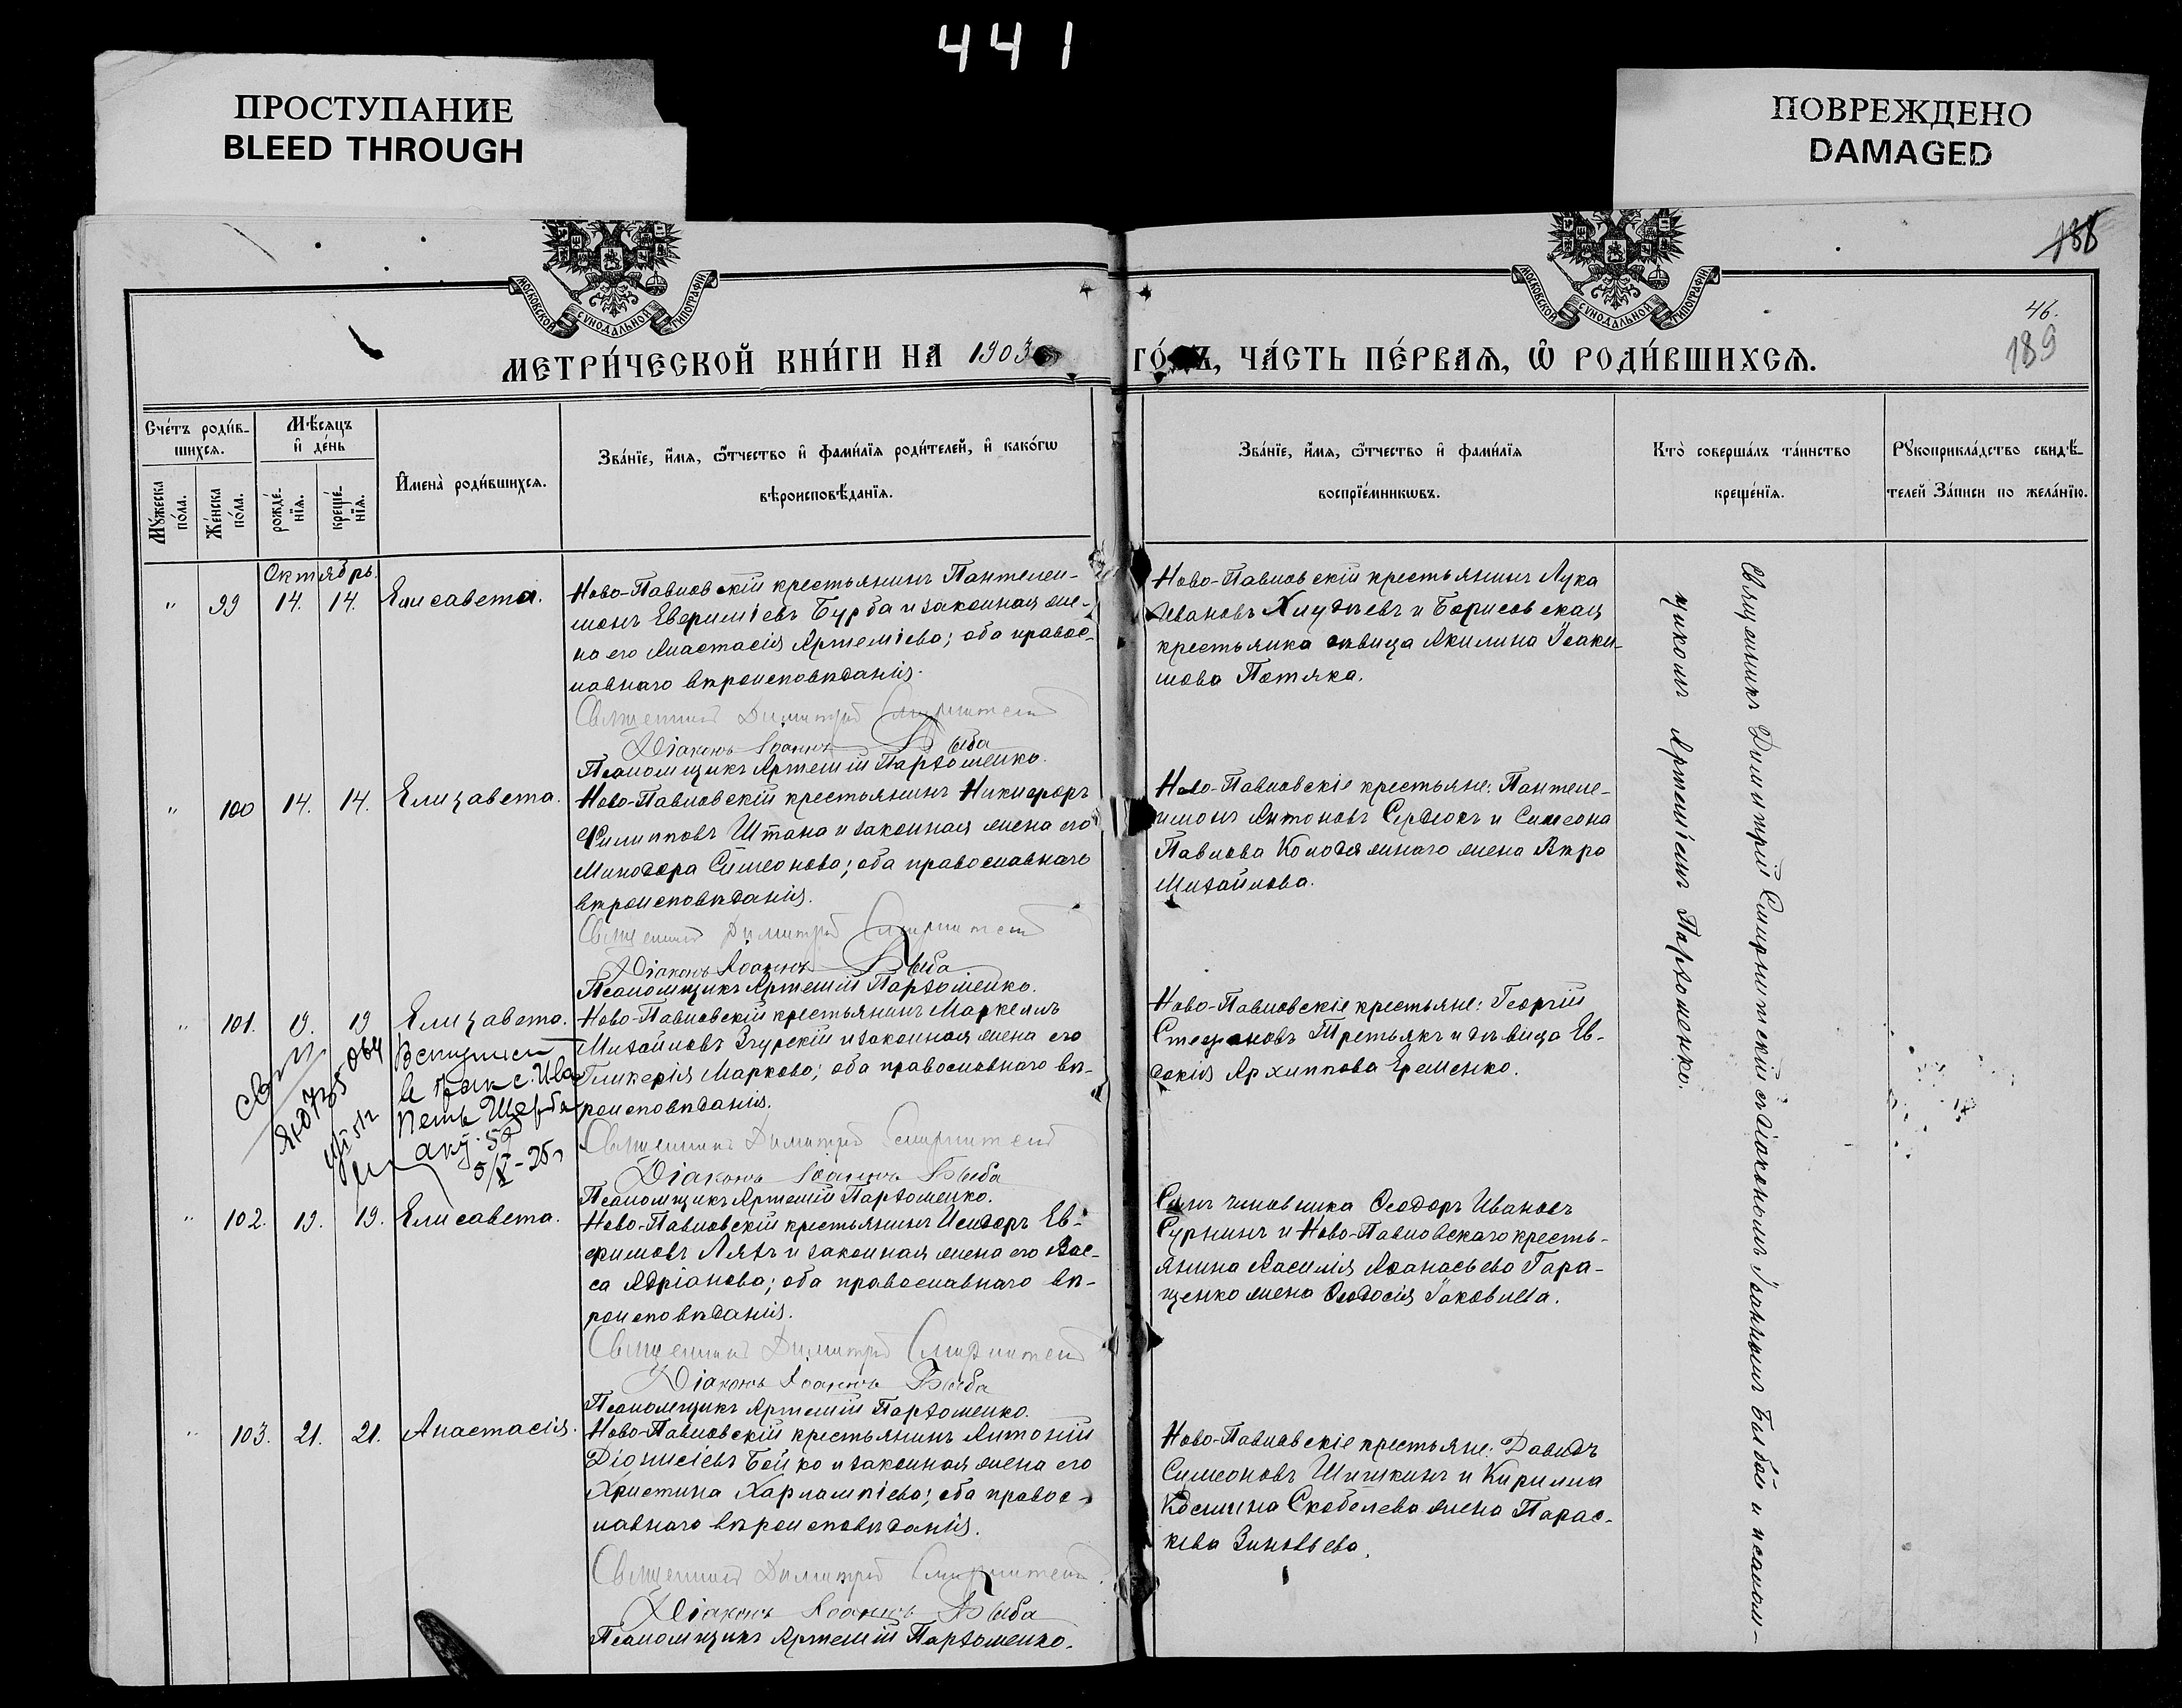 441
ПРОСТУПАНИЕ
BLEED THROUGH
ПОВРЕЖДЕНО
DAMAGED
188
46.
189
МОСКОВСКОЙ СѴНОДАЛЬНОЙ ТИПОГРАФІИ
МОСКОВСКОЙ СѴНОДАЛЬНОЙ ТИПОГРАФІИ
МЕТРИ́ЧЕСКОЙ КНИ́ГИ НА 1903 ГО́ДЪ, ЧА́СТЬ ПЕ́РВАѦ, Ѡ҆ РОДИ́ВШИХСѦ.
Сче́тъ роди́в-
шихсѧ.
Мꙋ́жеска по́ла.
Же́нска по́ла.
Мѣ́сѧцъ и҆ де́нь
рожде́-нїѧ.
креще́-нїѧ.
И҆мена̀ роди́вшихсѧ.
Зва́нїе, и҆́мѧ, ѻ҆́тчество и҆ фами́лїѧ роди́телей, и҆ како́гѡ
вѣроисповѣ́данїѧ.
Зва́нїе, и҆́мѧ, ѻ҆́тчество и҆ фами́лїѧ
воспрїе́мникѡвъ.
Кто̀ соверша́лъ та́инство
креще́нїѧ.
Рꙋкоприкла́дство свидѣ́-
телей за́писи по жела́нїю.
Октябрь.
" 99 14. 14. Елисавета.
Ново-Павловскій крестьянинъ Пантелеи-
монъ Евѳиміевъ Бурба и законная же-
на его Анастасія Артеміева; оба правос-
лавнаго вѣроисповѣданія.
Священникъ Димитрій
Діаконъ Іоаннъ Быба
Псаломщикъ Артемій Пархоменко.
Ново-Павловскій крестьянинъ Лука
Ивановъ и Борисовская
крестьянка дѣвица Акилина Іоаки-
мова Потяка.
" 100 14. 14. Елизавета.
Ново-Павловскій крестьянинъ Никифоръ
Филипповъ Штана и законная жена его
Минодора Симеонова; оба православнаго
вѣроисповѣданія.
Священникъ Димитрій
Діаконъ Іоаннъ Быба
Псаломщикъ Артемій Пархоменко.
Ново-Павловскіе крестьяне: Пантеле-
имонъ Антоновъ Сердюкъ и Симеона
Павлова Колодяжнаго жена Вѣра
Михайлова.
" 101. 19. 19 Елизавета.
Ново-Павловскій крестьянинъ Маркеллъ
Михайловъ Згурскій и законная жена его
Гликерія Маркова; оба православнаго вѣ-
роисповѣданія.
Священникъ Димитрій
Діаконъ Іоаннъ Быба
Псаломщикъ Артемій Пархоменко.
Ново-Павловскіе крестьяне: Георгій
Стефановъ Третьякъ и дѣвица Ев-
докія Архиппова Еременко.
акт. 59
" 102. 19. 19. Елисавета.
Ново-Павловскій крестьянинъ Исидоръ Ев-
фимовъ Ляхъ и законная жена его Вас-
са Адріанова; оба православнаго вѣ-
роисповѣданія.
Священникъ Димитрій
Діаконъ Іоаннъ Быба
Псаломщикъ Артемій Пархоменко.
Сынъ чиновника Ѳеодоръ Ивановъ
Сурнинъ и Ново-Павловскаго кресть-
янина Василія Аѳанасьева Гара-
щенко жена Ѳеодосія Іаковлева.
" 103. 21. 21. Анастасія.
Ново-Павловскій крестьянинъ Антоній
Діонисіевъ Бойко и законная жена его
Христина Харлампіева; оба правос-
лавнаго вѣроисповѣданія.
Священникъ Димитрій
Діаконъ Іоаннъ Быба
Псаломщикъ Артемій Пархоменко.
Ново-Павловскіе крестьяне: Давидъ
Симеоновъ Шишкинъ и Кирилла
Космина Скобелева жена Парас-
кева Зиновьева.
Священникъ Димитрій съ діакономъ Іоанномъ Быбой и псалом-
щикомъ Артеміемъ Пархоменко.